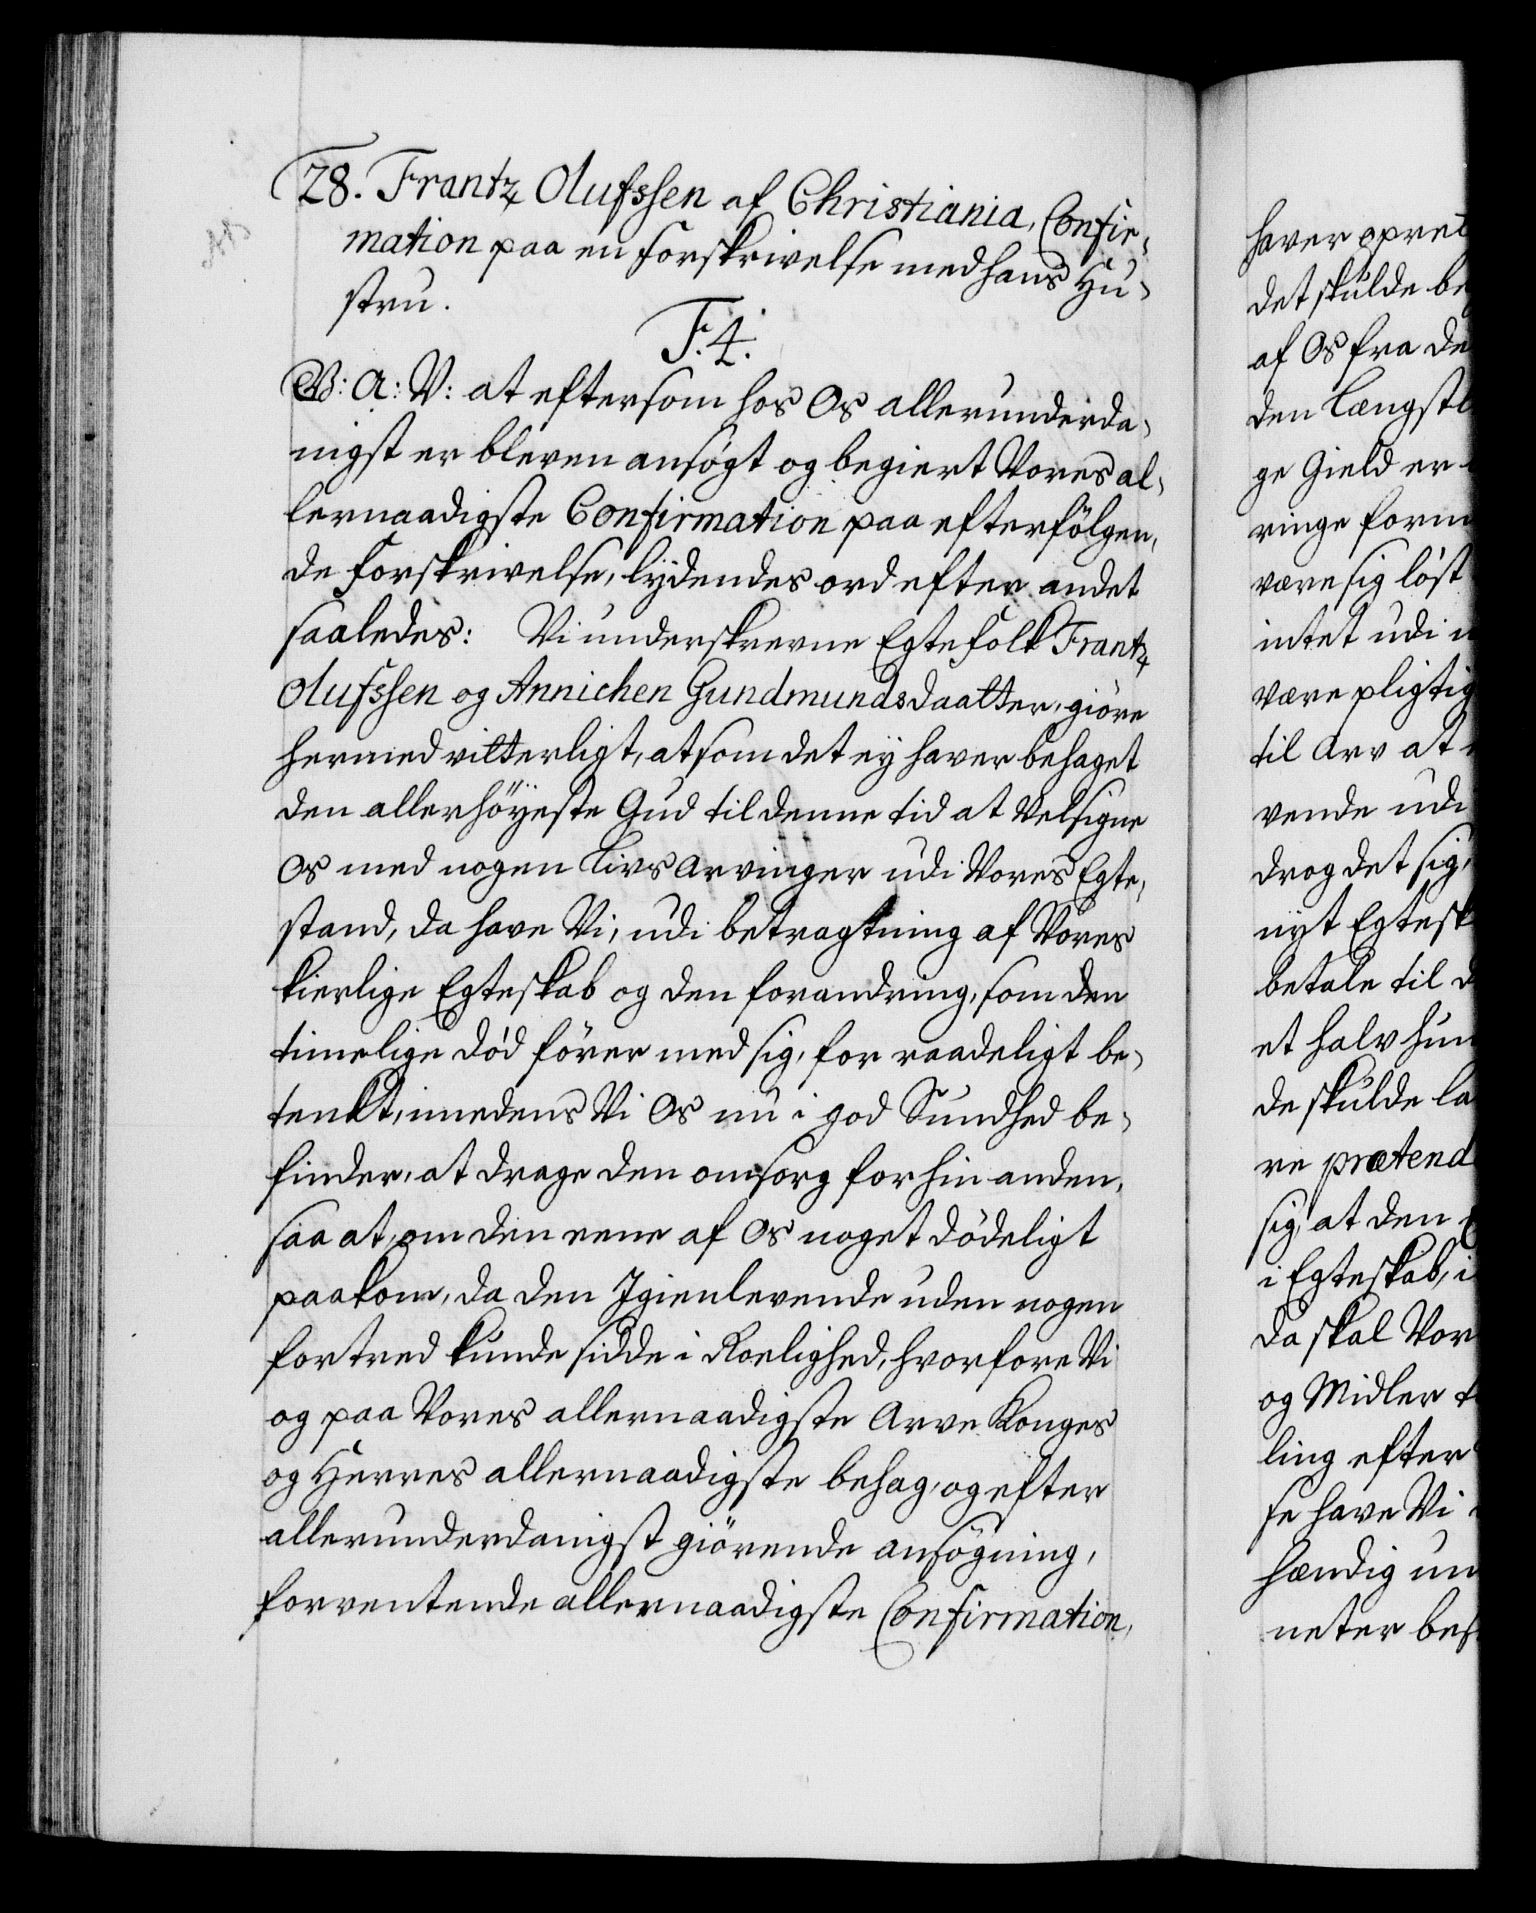 28. Frantz Olufssen af Christiania, Confir-
mation paa en forskrivelse med hans Hu-
stru.
F. 4.
V: A: V: at eftersom hos Os allerunderda-
nigst er bleven ansøgt og begiert Vores al-
lernaadigste Confirmation paa efterfölgen-
de forskrivelse, lydendes ord efter andet
saaledes: Vi underskrevne Egtefolk Frantz
Olufssen og Annichen Gundmundsdaatter, giöre
hermed vitterligt, at som det ey haver behaget
den allerhöyeste Gud til denne tid at Velsigne
Os med nogen Livs Arvinger udi Vores Egte-
stand, da have Vi, udi betragtning af Vores
kierlige Egteskab og den forandring, som den
timelige død förer med sig, for raadeligt be-
tenkt, imedens Vi Os nu i god Sundhed be-
finder, at drage den omsorg for hin anden,
saa at, om den eene af Os noget dödeligt
paakom, da den Igienlevende uden nogen
fortred kunde sidde i Roelighed, hvorfore Vi
og paa Vores allernaadigste Arve Konges
og Herres allernaadigste behag, og efter
allerunderdanigst giörende ansøgning,
forventende allernaadigste Confirmation,
haver opret
det skulde be
af Os fra de
den Længstl
ge Gield er
ringe form
være sig løst
intet udi
være pligtig
til Arv at
vende udi
drog det sig,
nyt Egtesk
betale til d
et halv hun
de skulde la
re prætend
sig, at den
i Egteskab, i
da skal Vor
og Midler t
ling efter
se have Vi
hændig un
neter bes